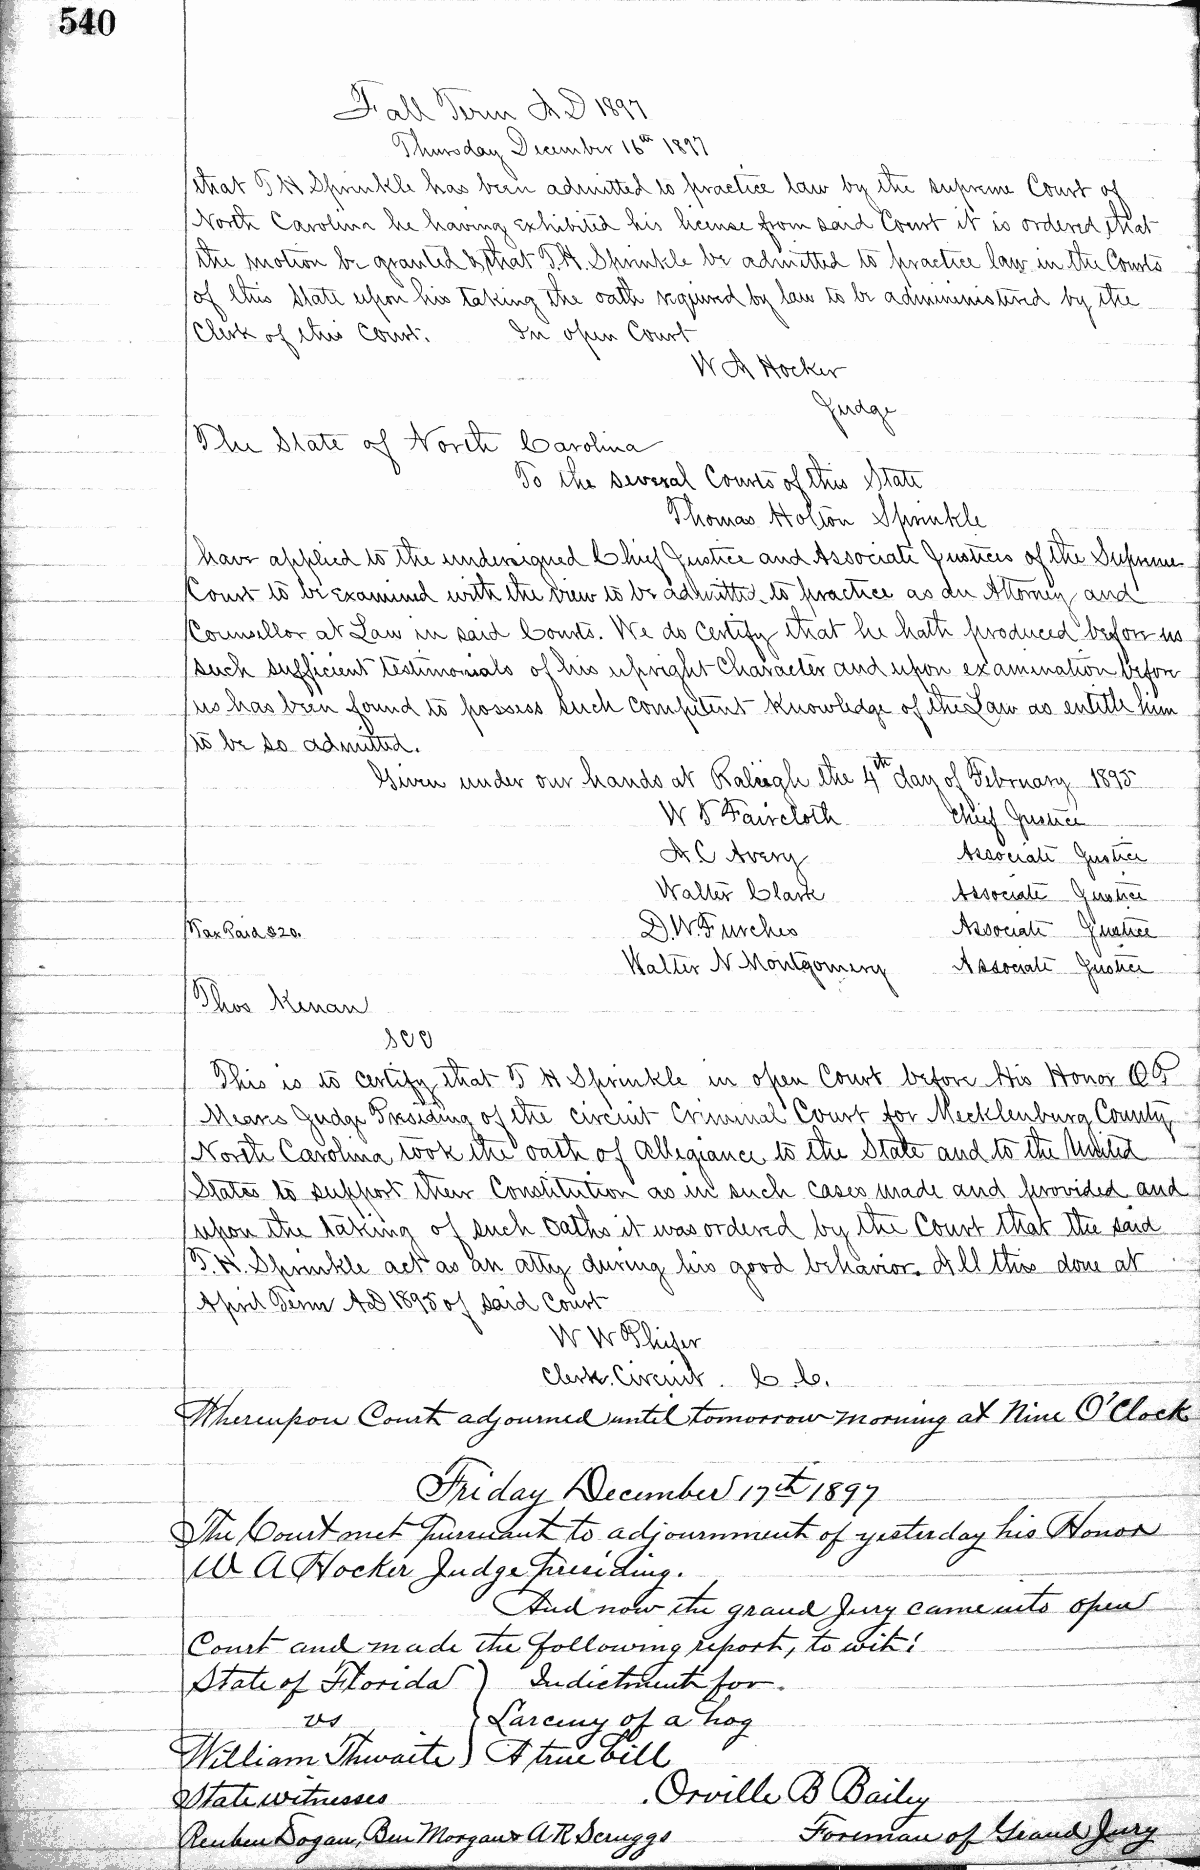 540
Fall Term A D 1897
Thursday December 16th 1897
that T H Sprinkle has been admitted to practice law by the supreme Court of
North Carolina he having exhibited his license from said Court it is ordered that
the motion be granted & that T. H. Sprinkle be admitted to practice law in the Courts
of this State upon his taking the oath required by law to be admininistered by the
Clerk of this Court. In open Court
W A Hocker
Judge
The State of North Carolina
To the several Courts of this State
Thomas Holton Sprinkle
have applied to the undersigned Chief Justice and Associate Justices of the Supreme
Court to be examined with the view to be admitted to practice as an Attorney and
Counsellor at Law in said Courts. We do certify that he hath produced before us
such sufficient testimonials of his upright Character and upon examination before
us has been found to possess such competent knowledge of the Law as entitle him
to be so admitted.
Given under our hands at Raleigh the 4th day of February 1895
W T Faircloth Chief Justice
A C Avery Associate Justice
Walter Clark Associate Justice
Tax Paid $20. D. W. Furches Associate Justice
Walter N Montgomery Associate Justice
Thos Kenan
SCC
This is to certify that T H Sprinkle in open Court before His Honor O P
Means Judge Presiding of the circuit Criminal Court for Mecklenburg County
North Carolina took the oath of Allegiance to the State and to the United
States to support their Constitution as in such cases made and provided and
upon the taking of such oaths it was ordered by the Court that the said
T. H. Sprinkle act as an atty during his good behavior. All this done at
April Term AD 1895 of said Court
W W Phifer
Clerk. Circuit. C. C.
Whereupon Court adjourned until tomorrow morning at Nine O'Clock
Friday December 17th 1897
The Court met pursuant to adjournment of yesterday his Honor
W A Hocker Judge presiding.
And now the grand Jury came into open
Court and made the following report, to wit:
State of Florida ) Indictment for.
vs } Larceny of a hog
William Thwaite ) A true bill
State witnesses . Orville B Bailey
Reuben Dogan, Ben Morgan & A R Scruggs Foreman of Grand Jury